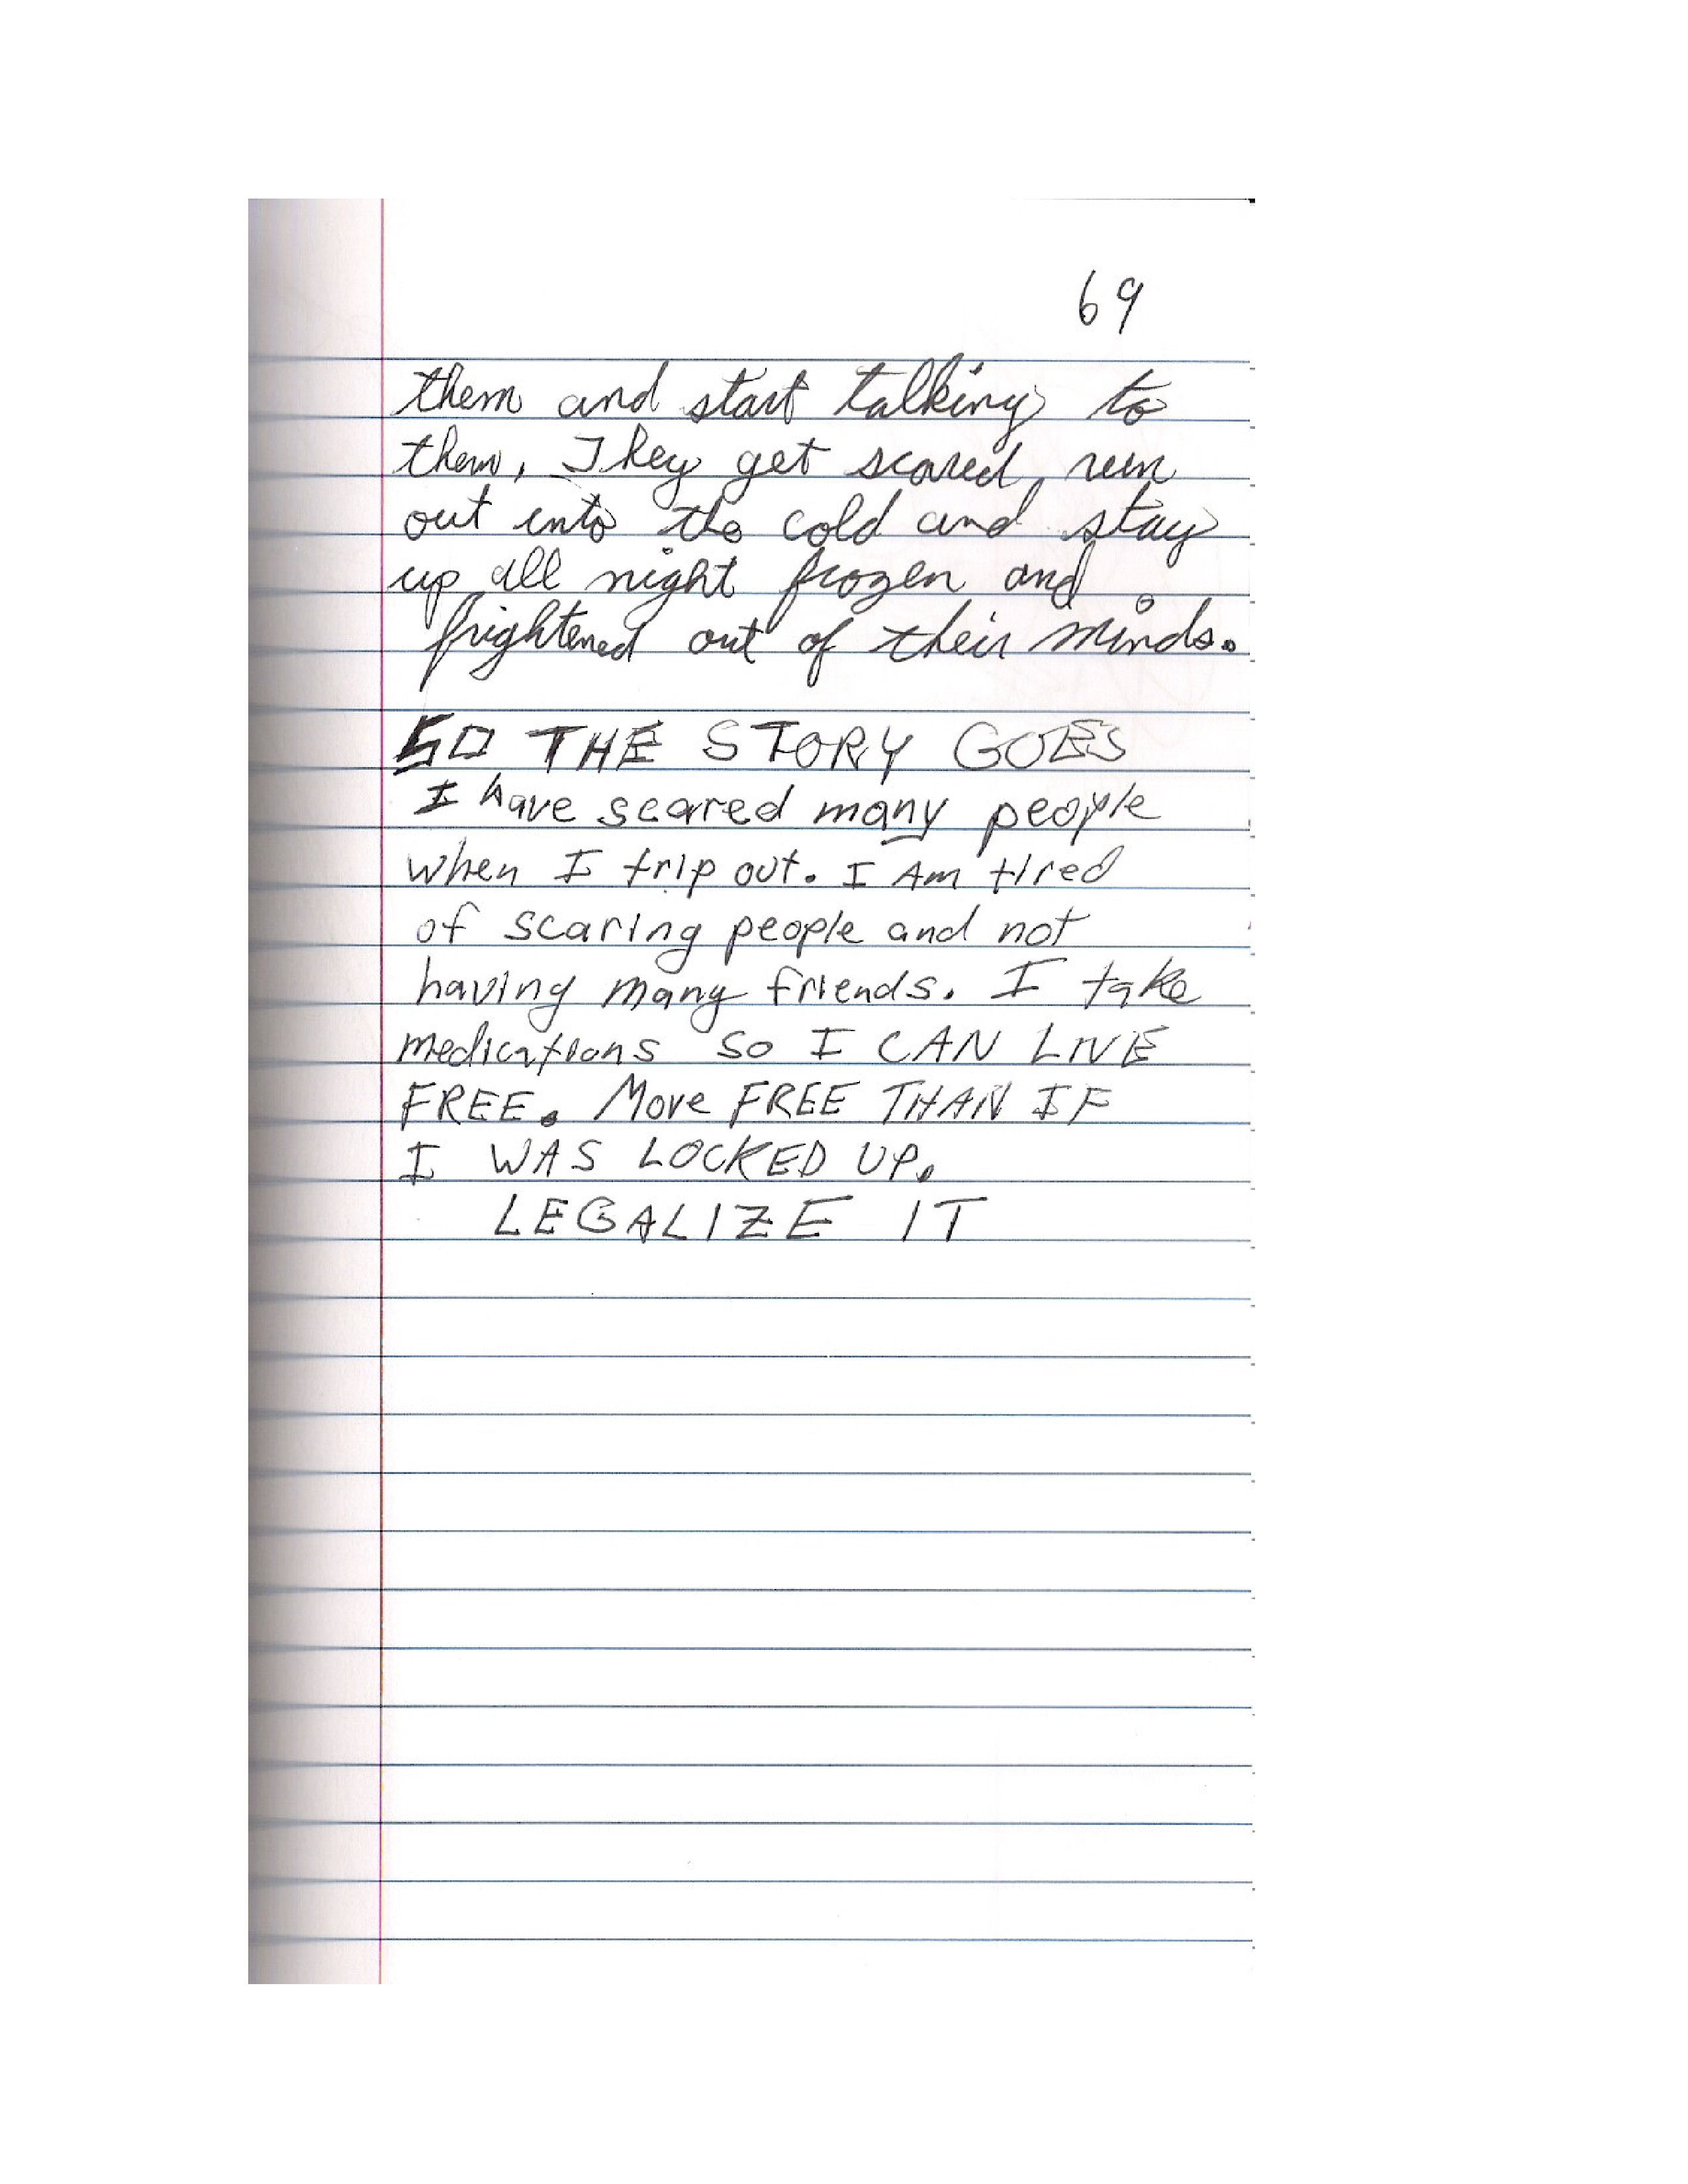 69
them and start talking to
them, They get scared, run
out into the cold and stay
up all night frozen and
frightened out of their minds.
SO THE STORY GOES
I have scared many people
when I trip out. I Am tired
of scaring people and not
having many friends. I take
medications so I CAN LIVE
FREE. More FREE THAN IF
I WAS LOCKED UP.
LEGALIZE IT